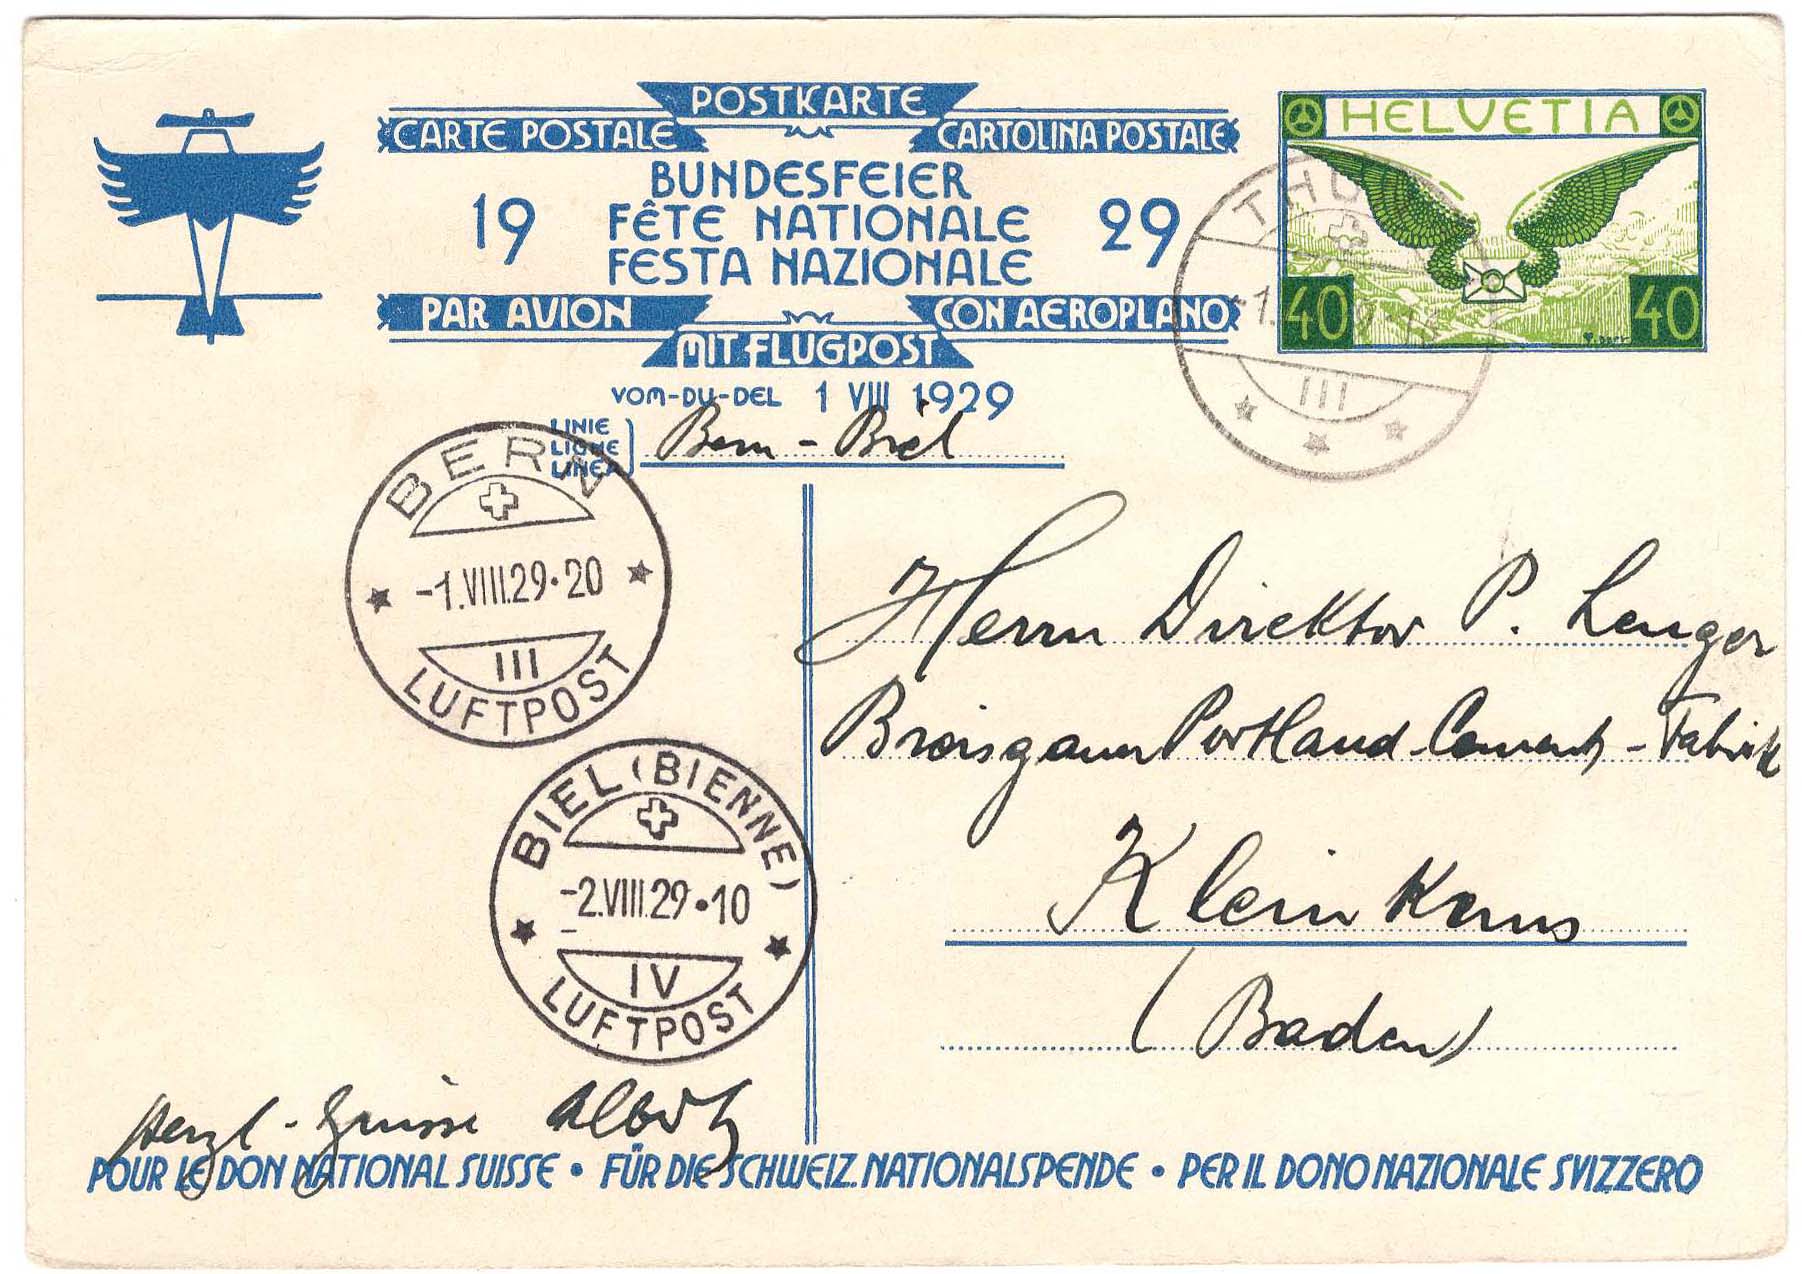 POSTKARTE
CARTE POSTALE CARTOLINA POSTALE
HELVETIA
BUNDESFEIER
19 FÊTE NATIONALE 29
FESTA NAZIONALE
PAR AVION CON AEROPLANO
MIT FLUGPOST
40 40
VOM-DU-DEL 1 VIII 1929
LINIE
LIGNE
LINEA
Bern - Biel
THUN
III
BERN
-1.VIII.29•20
III
LUFTPOST
Herrn Direktor P. Lenger
Breisgauer Portland-Cement-Fabrik
Kleinkems
(Baden)
BIEL (BIENNE)
-2.VIII.29•10
IV
LUFTPOST
Herzl-Grüsse Albert
POUR LE DON NATIONAL SUISSE • FÜR DIE SCHWEIZ. NATIONALSPENDE • PER IL DONO NAZIONALE SVIZZERO